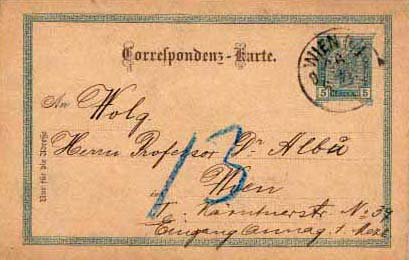 Correspondenz-Karte.
WIEN
5 5
An Wolg.
Herrn Professor Dr Albū
in Wien
I. Kärntnerstr No 39
Eingang Annag. 1.
Nur für die Adresse
13